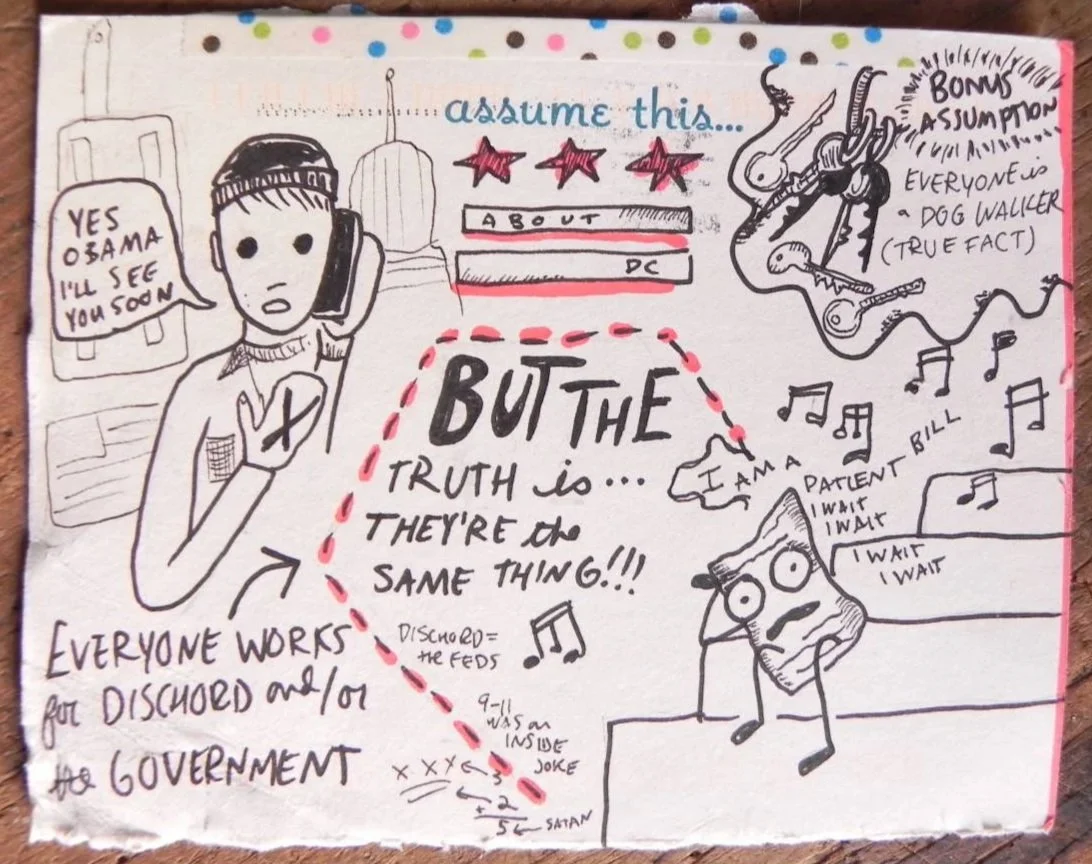 assume this...
ABOUT
DC
YES
OBAMA
I'LL SEE
YOU SOON
X
BONUS
ASSUMPTION
EVERYONE is
a DOG WALKER
(TRUE FACT)
BUT THE
TRUTH is...
THEY'RE the
SAME THING!!!
I AM A
PATIENT BILL
I WAIT
I WAIT
I WAIT
I WAIT
EVERYONE WORKS
for DISCHORD and/or
the GOVERNMENT
DISCHORD =
the FEDS
9-11
WAS an
INSIDE
JOKE
X X X ← 3
+ 2
5 ← SATAN